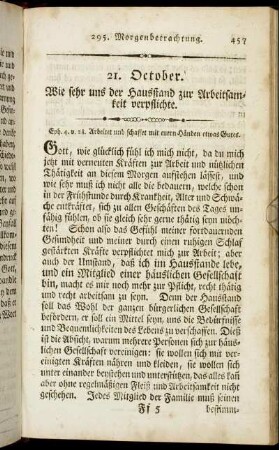 295. Morgenbetrachtung. 457
21. October.
Wie sehr uns der Hausstand zur Arbeitsam-
keit verpflichte.
Eph. 4. v. 28. Arbeitet und schaffet mit euren Händen etwas Gutes.
Gott, wie glücklich fühl ich mich nicht, da du mich
jetzt mit verneuten Kräften zur Arbeit und nützlichen
Thätigkeit an diesem Morgen aufstehen lässest, und
wie sehr muß ich nicht alle die bedauern, welche schon
in der Frühstunde durch Krankheit, Alter und Schwä-
che entkräftet, sich zu allen Geschäften des Tages un-
fähig fühlen, ob sie gleich sehr gerne thätig seyn möch-
ten! Schon also das Gefühl meiner fortdauernden
Gesundheit und meiner durch einen ruhigen Schlaf
gestärkten Kräfte verpflichtet mich zur Arbeit; aber
auch der Umstand, daß ich im Hausstande lebe,
und ein Mitglied einer häuslichen Gesellschaft
bin, macht es mir noch mehr zur Pflicht, recht thätig
und recht arbeitsam zu seyn. Denn der Hausstand
soll das Wohl der ganzen bürgerlichen Gesellschaft
befördern, er soll ein Mittel seyn, uns die Bedürfnisse
und Bequemlichkeiten des Lebens zu verschaffen. Dieß
ist die Absicht, warum mehrere Personen sich zur häus-
lichen Gesellschaft vereinigen: sie wollen sich mit ver-
einigten Kräften nähren und kleiden, sie wollen sich
unter einander beystehen und unterstützen, das alles kañ
aber ohne regelmäßigen Fleiß und Arbeitsamkeit nicht
geschehen. Jedes Mitglied der Familie muß seinen
Ff 5 bestimm-